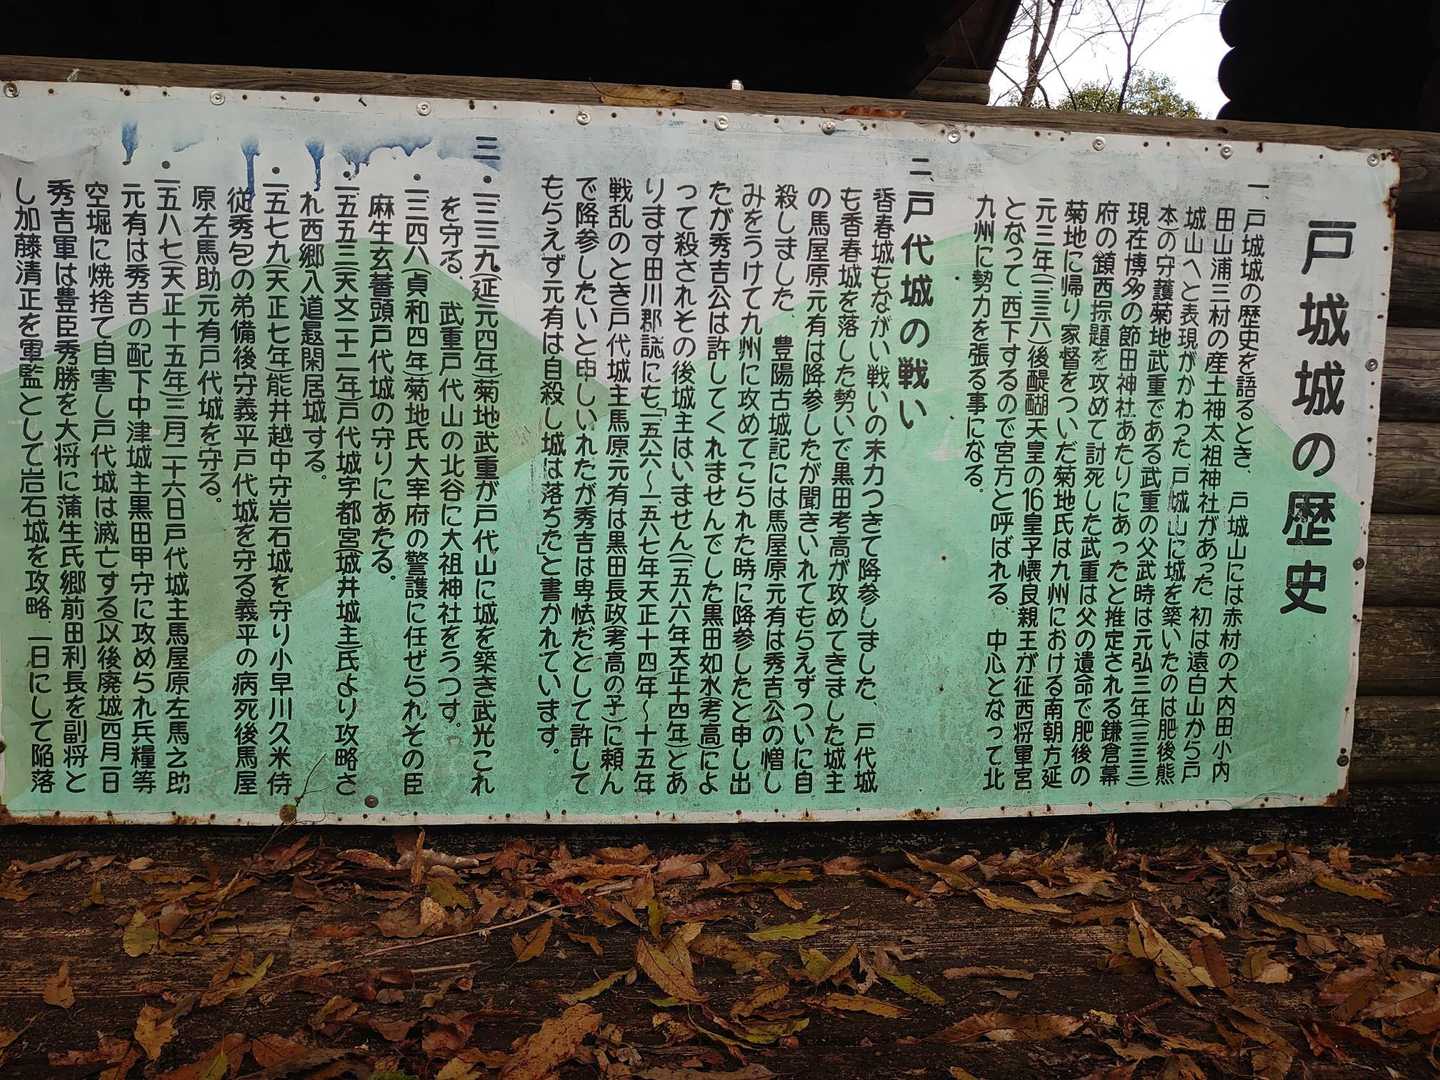 戸城城の歴史
一、戸城城の歴史を語るとき、戸城山には赤村の大内田小内
田山浦三村の産土神太祖神社があった、初は遠白山から戸
城山へと表現がかわった戸城山に城を築いたのは肥後熊
本)の守護菊地武重である武重の父武時は元弘三年(一三三三)
現在博多の節田神社あたりにあったと推定される鎌倉幕
府の鎮西探題を攻めて討死した武重は父の遺命で肥後の
菊地に帰り家督をついだ菊地氏は九州における南朝方延
元三年(一三三六)後醍醐天皇の16皇子懐良親王が征西将軍宮
となって、西下するので宮方と呼ばれる、中心となって北
九州に勢力を張る事になる。
二、戸代城の戦い
香春城もながい戦いの末力つきて降参しました、戸代城
も香春城を落した勢いで黒田考高が攻めてきました城主
の馬屋原元有は降参したが聞きいれてもらえずついに自
殺しました、豊陽古城記には馬屋原元有は秀吉公の憎し
みをうけて九州に攻めてこられた時に降参したと申し出
たが秀吉公は許してくれませんでした黒田如水(考高)によ
って殺されその後城主はいません(一五八六年天正十四年)とあ
ります田川郡誌にも「一五八六〜一五八七年天正十四年〜十五年
戦乱のとき戸代城主馬原元有は黒田長政(考高の子)に頼ん
で降参したいと申しいれたが秀吉は卑怯だとして許して
もらえず元有は自殺し城は落ちた」と書かれています。
三
・一三三九(延元四年)菊地武重が戸代山に城を築き武光これ
を守る、武重戸代山の北谷に大祖神社をうつす。
・一三四八(貞和四年)菊地氏大宰府の警護に任ぜられその臣
麻生玄蕃頭戸代城の守りにあたる。
・一五五三(天文二十二年)戸代城宇都宮(城井城主)氏より攻略さ
れ西郷入道最閑居城する。
・一五七九(天正七年)能井越中守岩石城を守り小早川久米侍
従秀包の弟備後守義平戸代城を守る義平の病死後馬屋
原左馬助元有戸代城を守る。
・一五八七(天正十五年)三月二十六日戸代城主馬屋原左馬之助
元有は秀吉の配下中津城主黒田甲守に攻められ兵糧等
空堀に焼捨て自害し戸代城は滅亡する(以後廃城)四月一日
秀吉軍は豊臣秀勝を大将に蒲生氏郷前田利長を副将と
し加藤清正を軍監として岩石城を攻略、一日にして陥落